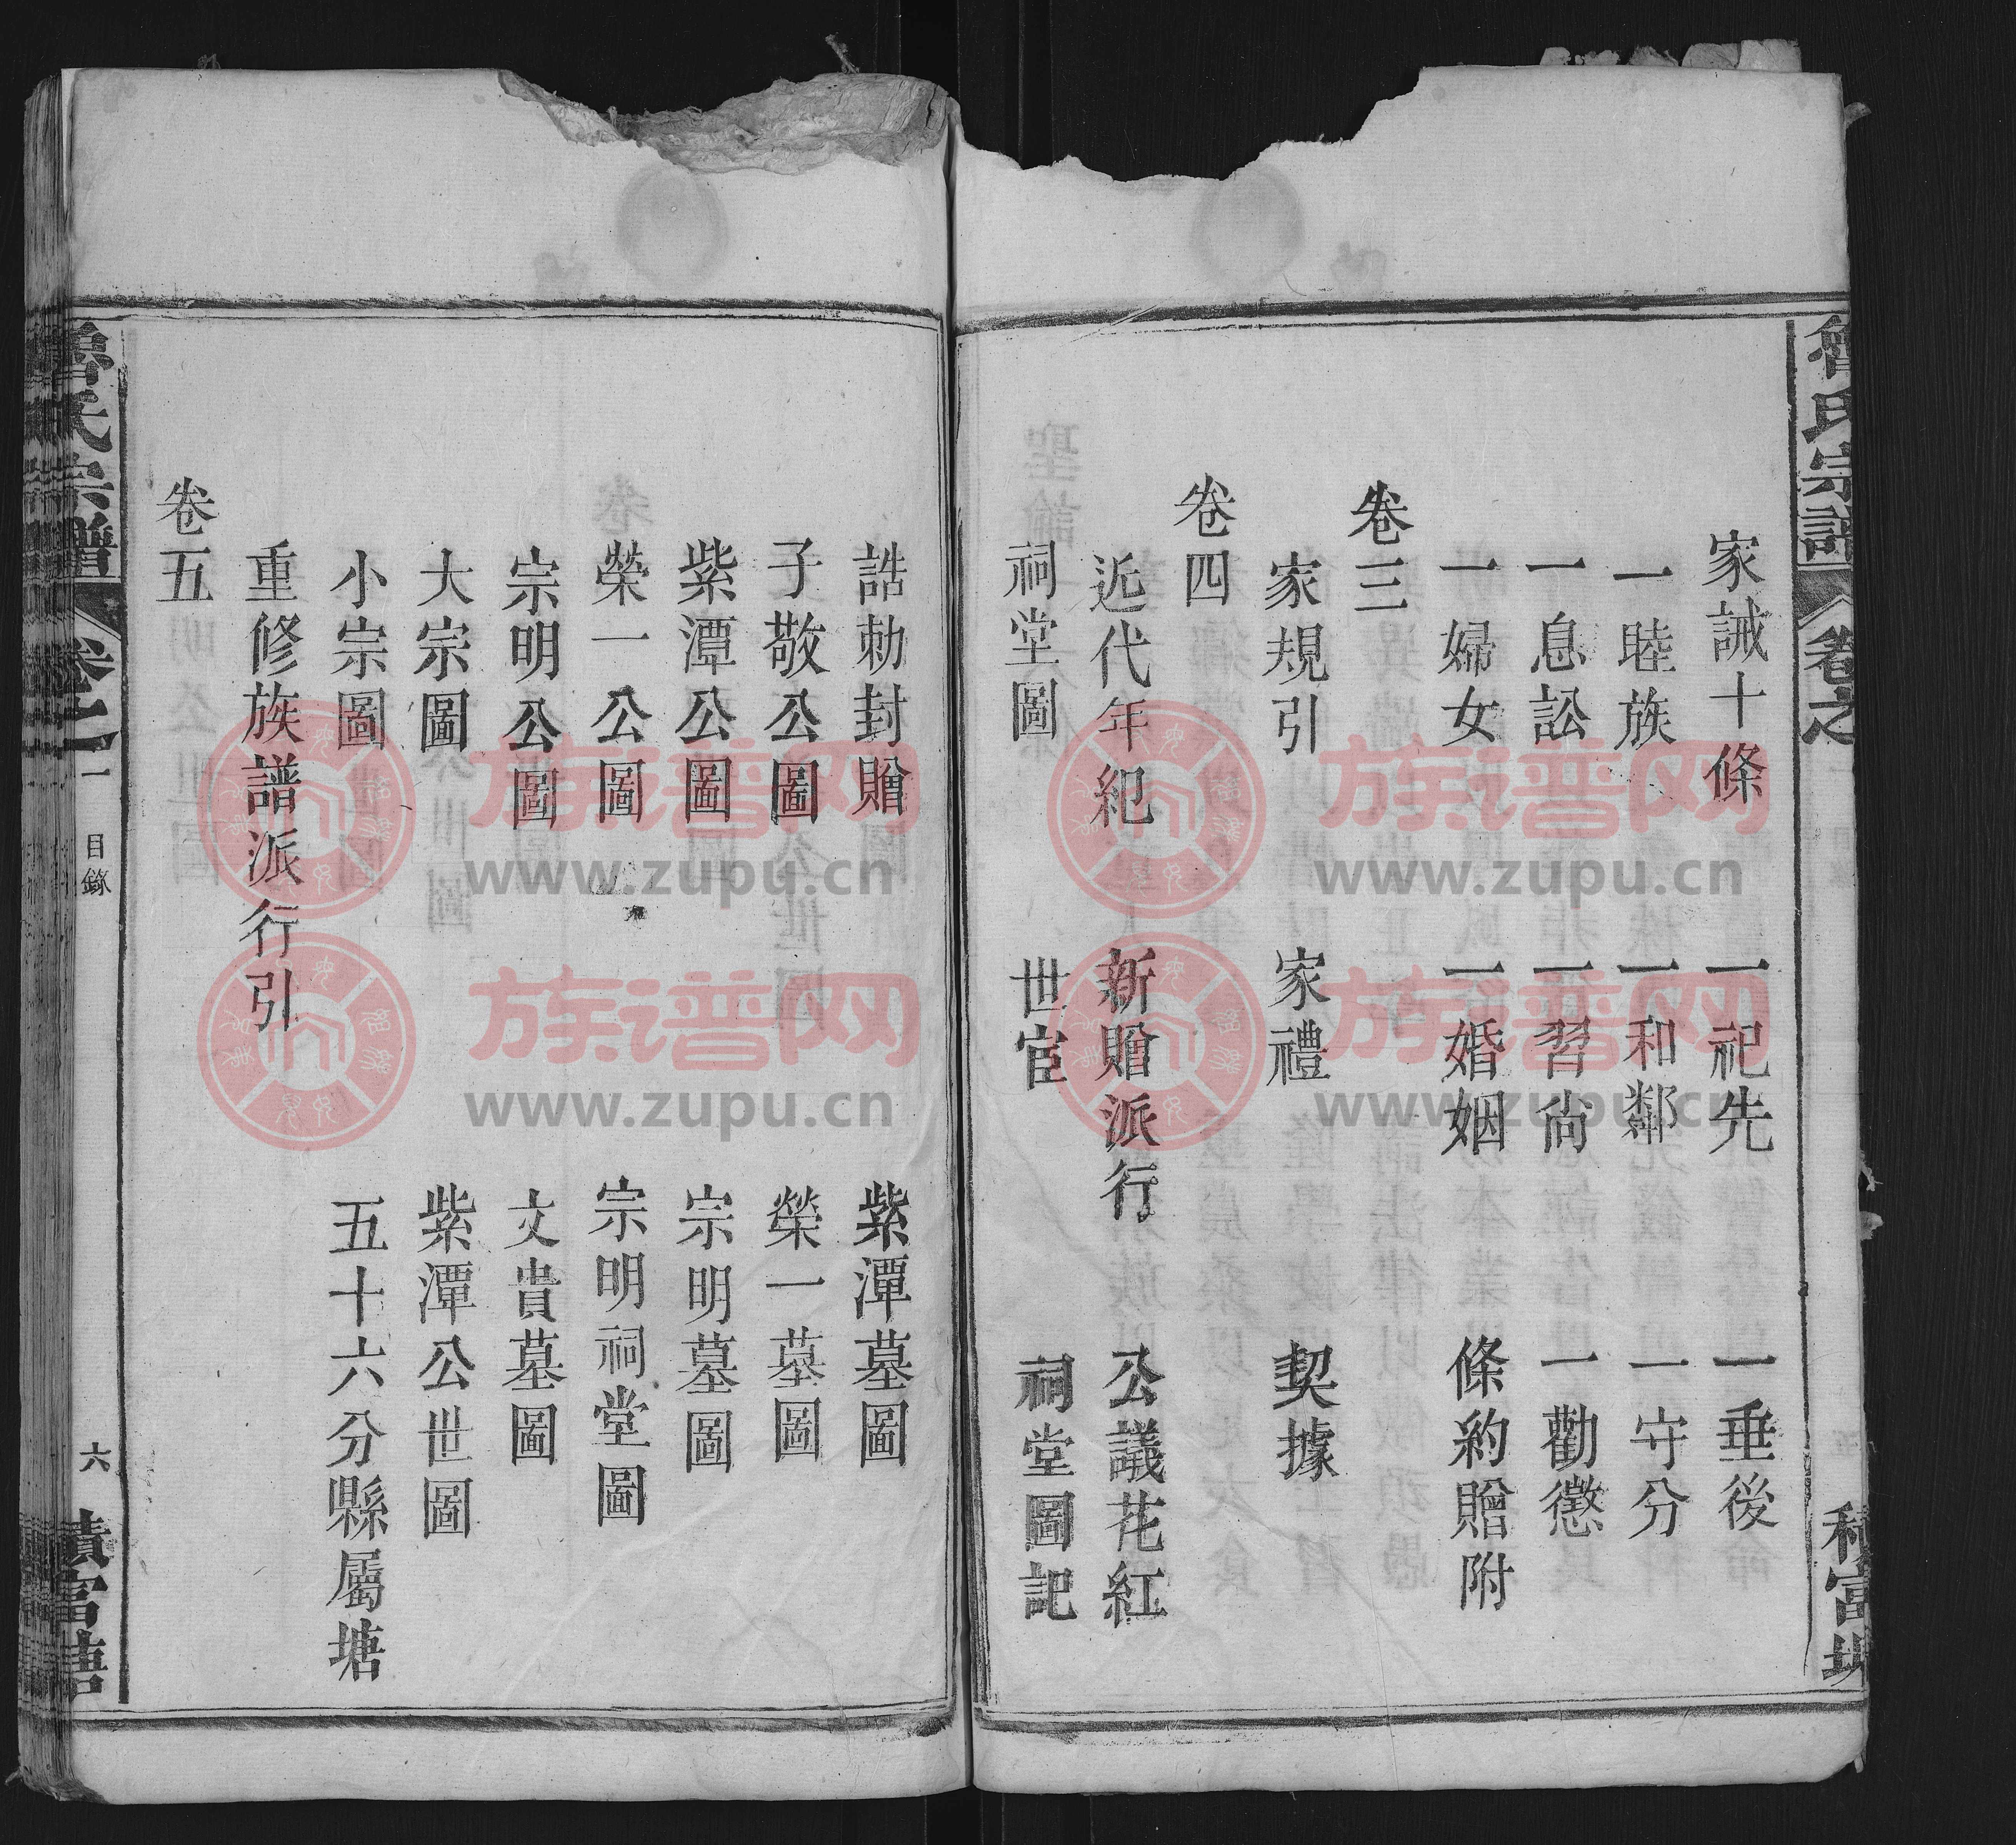 家誡十條 一祀先 一垂後
一睦族 一和鄰 一守分
一息訟 一習尚 一勸懲
一婦女 一婚姻 條約贈附
卷三
家規引 家禮 契據
卷四
近代年紀 新贈派行 公議花紅
祠堂圖 世宦 祠堂圖記
誥勅封贈 紫潭墓圖
子敬公圖 榮一墓圖
紫潭公圖 宗明墓圖
榮一公圖 宗明祠堂圖
宗明公圖 文貴墓圖
大宗圖 紫潭公世圖
小宗圖 五十六分縣屬塘
重修族譜派行引
卷五
氏宗譜 卷之 目錄 六 富塘
族谱网
www.zupu.cn
族谱网
www.zupu.cn
族谱网
www.zupu.cn
族谱网
www.zupu.cn